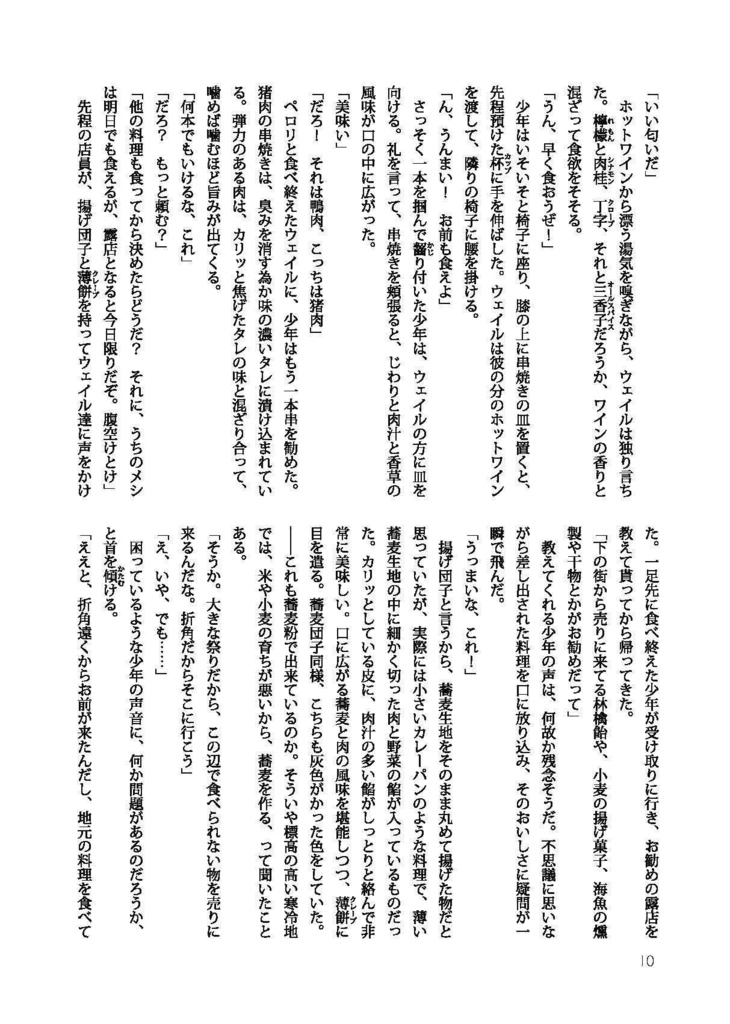 「いい匂いだ」
　ホットワインから漂う湯気を嗅ぎながら、ウェイルは独り言ち
た。檸檬と肉桂、丁字、それと三香子だろうか、ワインの香りと
混ざって食欲をそそる。
「うん、早く食おうぜ！」
　少年はいそいそと椅子に座り、膝の上に串焼きの皿を置くと、
先程預けた杯に手を伸ばした。ウェイルは彼の分のホットワイン
を渡して、隣りの椅子に腰を掛ける。
「ん、うんまい！　お前も食えよ」
　さっそく一本を掴んで齧り付いた少年は、ウェイルの方に皿を
向ける。礼を言って、串焼きを頬張ると、じわりと肉汁と香草の
風味が口の中に広がった。
「美味い」
「だろ！　それは鴨肉、こっちは猪肉」
　ペロリと食べ終えたウェイルに、少年はもう一本串を勧めた。
猪肉の串焼きは、臭みを消す為か味の濃いタレに漬け込まれてい
る。弾力のある肉は、カリッと焦げたタレの味と混ざり合って、
噛めば噛むほど旨みが出てくる。
「何本でもいけるな、これ」
「だろ？　もっと頼む？」
「他の料理も食ってから決めたらどうだ？　それに、うちのメシ
は明日でも食えるが、露店となると今日限りだぞ。腹空けとけ」
　先程の店員が、揚げ団子と薄餅を持ってウェイル達に声をかけ
た。一足先に食べ終えた少年が受け取りに行き、お勧めの露店を
教えて貰ってから帰ってきた。
「下の街から売りに来てる林檎飴や、小麦の揚げ菓子、海魚の燻
製や干物とかがお勧めだって」
　教えてくれる少年の声は、何故か残念そうだ。不思議に思いな
がら差し出された料理を口に放り込み、そのおいしさに疑問が一
瞬で飛んだ。
「うっまいな、これ！」
　揚げ団子と言うから、蕎麦生地をそのまま丸めて揚げた物だと
思っていたが、実際には小さいカレーパンのような料理で、薄い
蕎麦生地の中に細かく切った肉と野菜の餡が入っているものだっ
た。カリッとしている皮に、肉汁の多い餡がしっとりと絡んで非
常に美味しい。口に広がる蕎麦と肉の風味を堪能しつつ、薄餅に
目を遣る。蕎麦団子同様、こちらも灰色がかった色をしていた。
――これも蕎麦粉で出来ているのか。そういや標高の高い寒冷地
では、米や小麦の育ちが悪いから、蕎麦を作る、って聞いたこと
ある。
「そうか。大きな祭りだから、この辺で食べられない物を売りに
来るんだな。折角だからそこに行こう」
「え、いや、でも……」
　困っているような少年の声音に、何か問題があるのだろうか、
と首を傾ける。
「ええと、折角遠くからお前が来たんだし、地元の料理を食べて
10